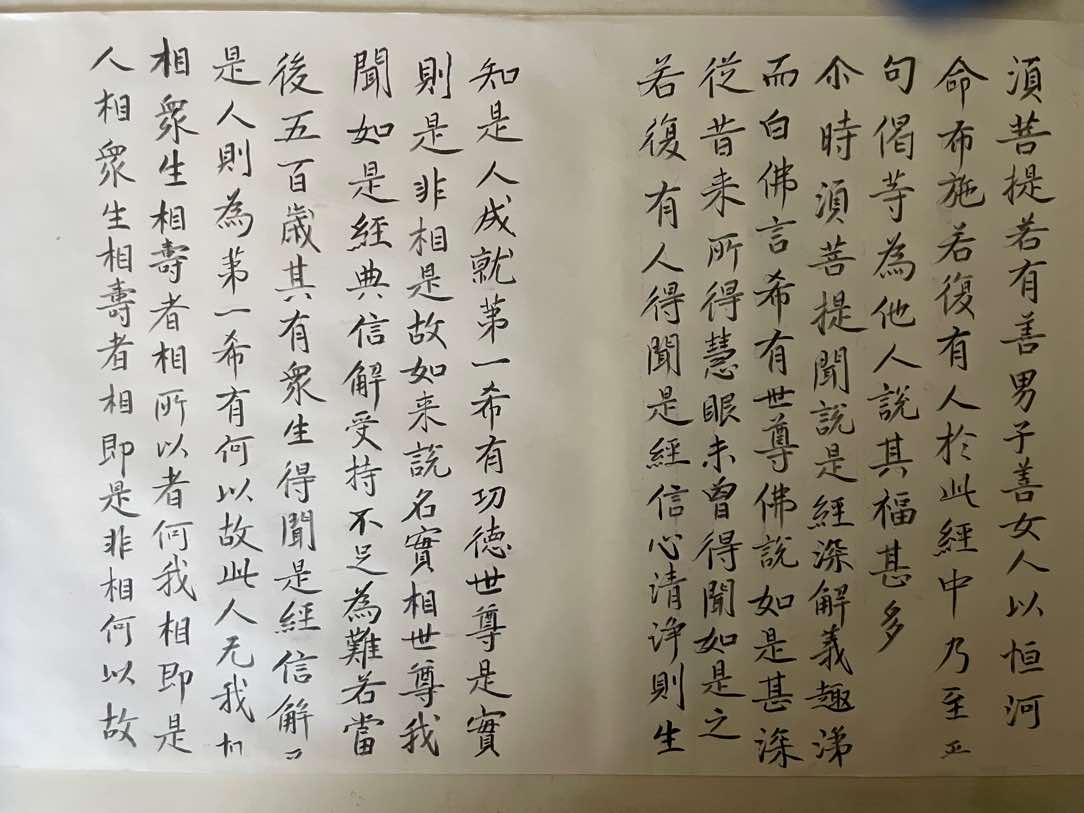 須菩提若有善男子善女人以恒河
命布施若復有人於此經中乃至
句偈等為他人說其福甚多
尒時須菩提聞說是經深解義趣涕
而白佛言希有世尊佛說如是甚深
從昔来所得慧眼未曾得聞如是之
若復有人得聞是經信心清淨則生
知是人成就第一希有功德世尊是實
則是非相是故如来說名實相世尊我
聞如是經典信解受持不足為難若當
後五百歲其有衆生得聞是經信解
是人則為第一希有何以故此人无我
相衆生相壽者相所以者何我相即是
人相衆生相壽者相即是非相何以故